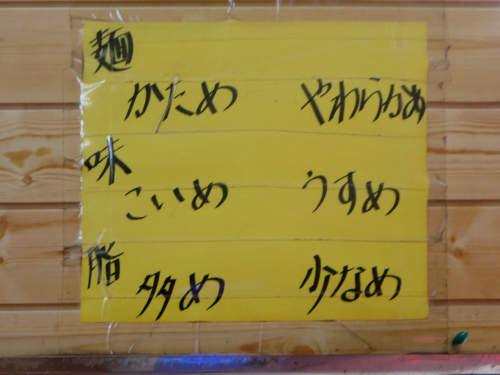 麺
かため やわらかめ
味
こいめ うすめ
脂
多め 少なめ